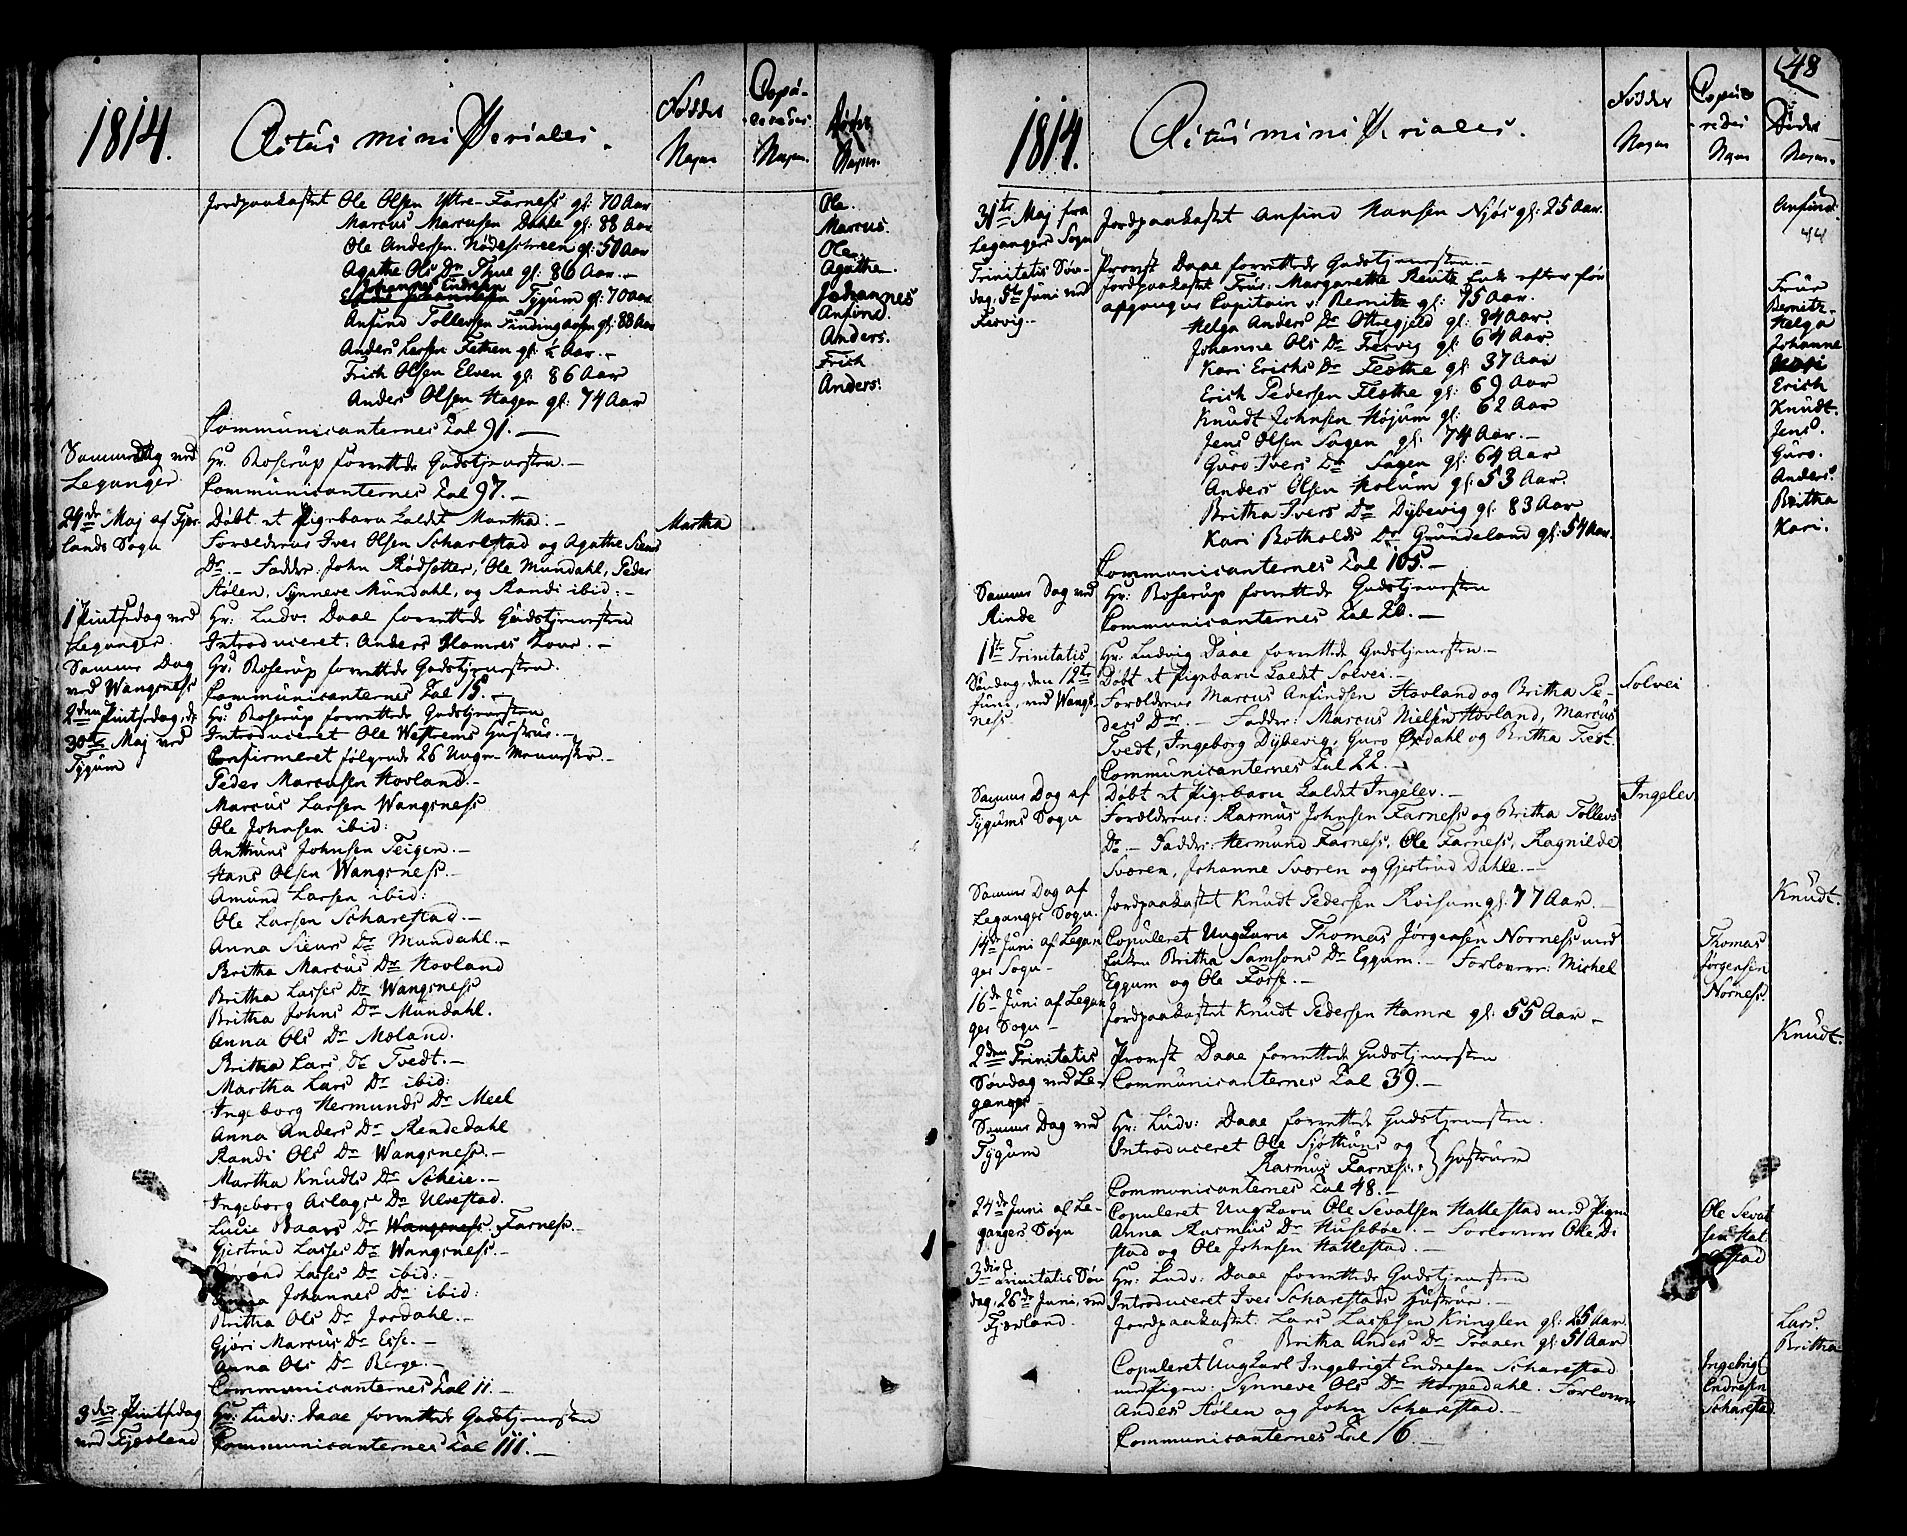 1814.
Actus ministeriales.
Fødder Nagn
Copuleredes Nagn.
Døder Nagn.
Jordpaakastet Ole Olsen Yttre-Farness gl: 70 Aar
Ole.
Marcus Marcusen Dahle gl: 88 Aar
Marcus.
Ole Andersen Nødeschreen gl: 50 Aar
Ole.
Agathe Ols Dr Thue gl: 86 Aar.
Agathe.
Johannes Endresen Tygum gl: 70 aar
Johannes
Anfind Tollevsen Findingaasen gl: 88 Aar
Anfind.
Anders Larsen Fethen gl: ½ Aar.
Anders.
Frich Olsen Elven gl: 86 Aar
Frich
Anders Olsen Hagen gl: 74 Aar
Anders.
Communicanternes Tal 91.
Samme Dag ved Leganger
Hr. Roserup forrettede Gudstjenesten.
Communicanternes Tal 97.
29de Maj af Fjærlands Sogn
Døbt et Pigebarn kaldet Martha.
Martha
Forældrene Iver Olsen Scharestad og Agathe Siurs
Dr. Faddere: John Rødsetter, Ole Mundahl, Peder
Aølen, Synneve Mundahl, og Randi ibid:
1 Pintsedag ved Leganger
Hr: Ludv: Daae forrettede Gudstjenesten
Introduceret: Anders Hamres Kone.
Samme Dag ved Wangsness
Hr. Roserup forrettede Gudstjenesten.
Communicanternes Tal 15.
2den Pintsedag, d: 30te Maj ved Tygum
Hr: Roserup forrettede Gudstjenesten
Introduceret Ole Westrems Hustrue.
Confirmeret følgende 26 Unge Mennesker.
Peder Marcusen Hovland.
Marcus Larsen Wangsness
Ole Johnsen ibid:
Anthuns Johnsen Teigen.
Hans Olsen Wangsness.
Amund Larsen ibid:
Ole Larsen Scharestad.
Anna Siurs Dr Mundahl.
Britha Marcus Dr Hovland
Britha Lasses Dr Wangsness
Britha Johns Dr Mundahl.
Anna Ols Dr Moland.
Britha Lars Dr Tvedt.
Martha Lars Dr ibid:
Ingeborg Hermunds Dr Meel
Anna Anders Dr Rendedahl
Randi Ols Dr Wangsness.
Martha Knudts Dr Scheie.
Ingeborg Aslags Dr Ulvestad.
Lucie Baars Dr Wangsness. Farness.
Gjertrud Lasses Dr Wangsness.
Lasses Dr ibid:
Johannes Dr ibid:
Britha Ols Dr Jordahl.
Gjøri Marcus Dr Esse.
Anna Ols Dr Berge.
Communicanternes Tal 11.
3die Pintsedag ved Fjærland
Hr: Ludv: Daae forrettede Gudstjenesten
Communicanternes Tal 111.
48
1814.
Actus ministeriales.
Fødder Nagn
Copuleredes Nagn
Døder Nagn.
31te Maj fra Legangers Sogn
Jordpaakastet Anfind Hansen Njøs gl: 25 Aar.
Anfind.
44
Trinitatis Søndag, 5te Juni ved Fresvig.
Provst Daae forrettede Gudstjenesten.
Jordpaakastet Frue: Margarethe Reutz Enke efter for
Frue
afgangne Capitain v: Bernitz gl: 75 Aar.
Bernitz.
Helga Anders Dr Ottregjeld gl: 84 Aar.
Helga
Johanne Ols Dr Fresvig gl: 64 Aar
Johanne
Kari Erichs Dr Flothe gl: 37 Aar
Kari
Erich Pedersen Flothe gl: 69 Aar
Erich
Knudt Johnsen Højum gl: 62 Aar
Knudt.
Jens Olsen Sagen gl: 74 Aar.
Jens.
Guro Ivers Dr Sagen gl: 64 Aar
Guro.
Anders Olsen Holum gl: 53 Aar.
Anders.
Britha Ivers Dr Dybevig gl: 83 Aar
Britha
Kari Botholds Dr Grundeland gl: 54 Aar.
Kari.
Communicanternes Tal 105.
Samme Dag ved Rinde
Hr: Roserup forrettede Gudstjenesten
Communicanternes Tal 20.
1ste Trinitatis Søndag, den 12te Juni, ved Wangsness
Hr: Ludvig Daae forrettede Gudstjenesten
Døbt et Pigebarn kaldet Solvei.
Solvei
Forældrene Marcus Anfindsen Hovland og Britha Pe-
ders Dr. Faddere: Marcus Nielsen Hovland, Marcus
Tvedt, Ingeborg Dybevig, Guro Øxdahl og Britha Tvedt.
Communicanternes Tal 22.
Samme Dag af Tygums Sogn
Døbt et Pigebarn kaldet Ingelev.
Ingelev.
Forældrene: Rasmus Johnsen Farness og Britha Tollevs
Dr. Faddere: Hermund Farness, Ole Farness, Ragnilde
Sværen, Johanne Sværen og Gjertrud Dahle.
Samme Dag af Leganger Sogn.
Jordpaakastet Knudt Pedersen Roisum gl: 77 Aar.
Knudt.
14de Juni af Leganger Sogn
Copuleret Ungkarl Thomas Jørgensen Norness med
Thomas Jørgensen Norness.
Enken Britha Samsons Dr Eggum. Forlovere: Michel
Eggum og Ole Fosse.
16de Juni af Leganger Sogn
Jordpaakastet Knudt Pedersen Hamre gl: 55 Aar
Knudt.
2den Trinitatis Søndag ved Leganger
Provst Daae forrettede Gudstjenesten
Communicanternes Tal 39.
Samme Dag ved Tygum
Hr: Ludv: Daae forrettede Gudstjenesten.
Introduceret Ole Sjøthuns og
Rasmus Farness. } Hustruer
Communicanternes Tal 48.
24de Juni af Legangers Sogn
Copuleret Ungkarl Ole Sevatsen Hallestad med Pigen
Ole Sevatsen Hallestad
Anna Rasmus Dr Husebøe. Forlovere Ole Di-
stad og Ole Johnsen Hallestad.
3die Trinitatis Søndag, 26de Juni, ved Fjærland.
Hr: Ludv: Daae forrettede Gudstjenesten
Introduceret Iver Scharestads Hustrue.
Jordpaakastet: Lars Lassesen Kringlen gl: 25 Aar.
Lars.
Britha Andes Dr Traaen gl: 51 Aar
Britha
Copuleret Ungkarl Ingebrigt Endresen Scharestad
Ingebrigt Endresen Scharestad.
med Pigen: Synneve Ols Dr Horpedahl. Forlovere
Anders Aølen og John Scharestad.
Communicanternes Tal 16.